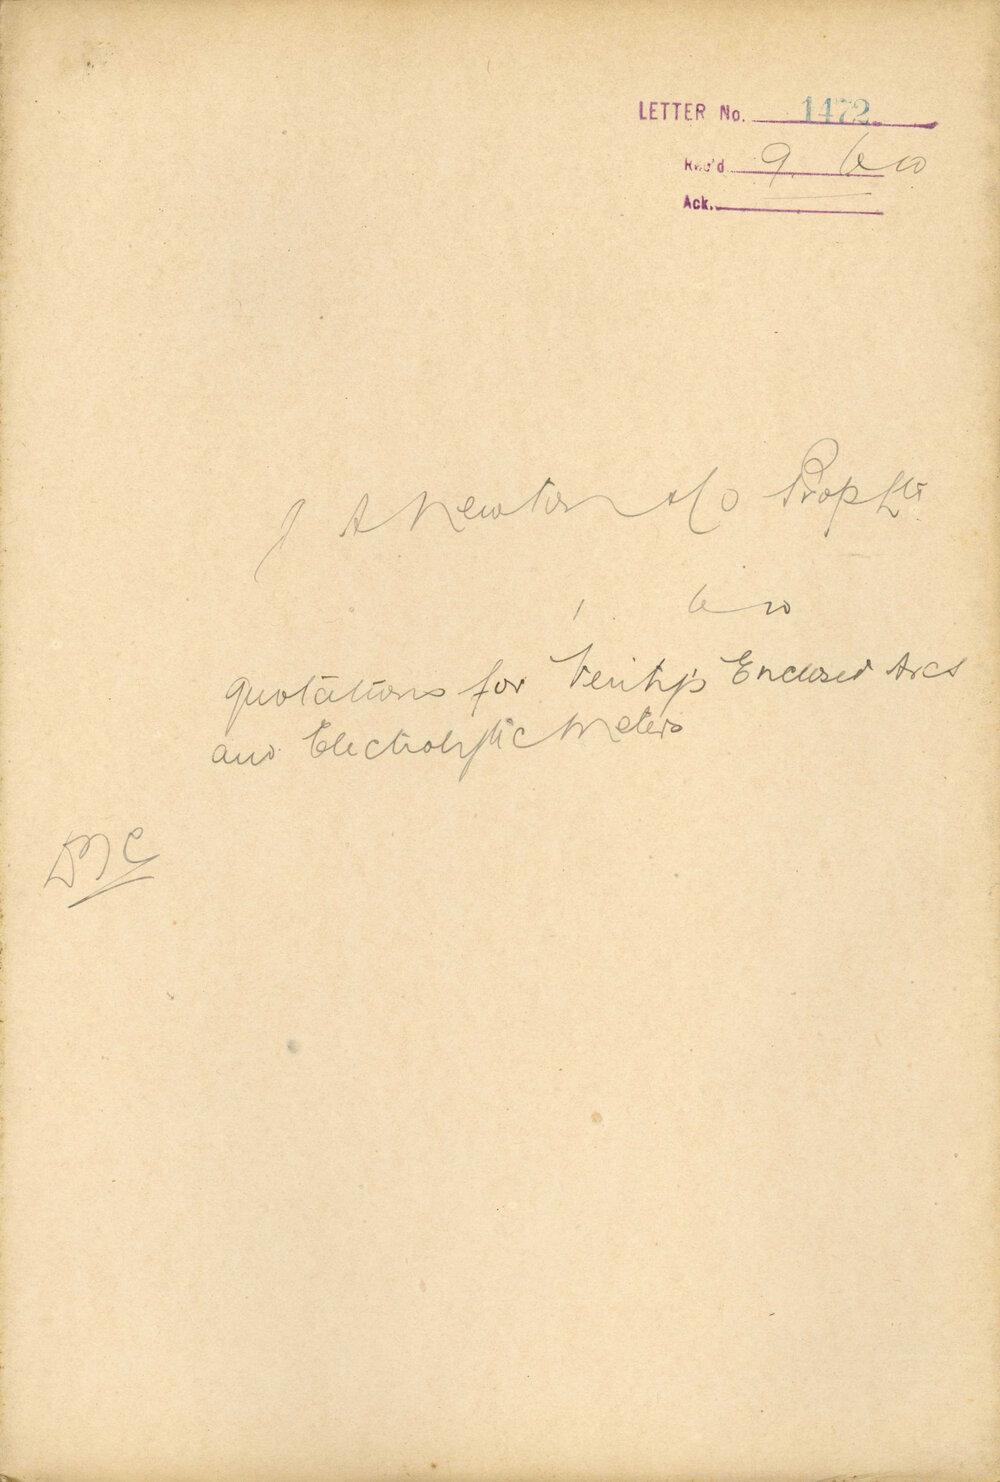 LETTER No. 1472
Rec'd 9. 6 00
Ack.
J A Newton & Co Prop Ltd
1. 6 00
quotations for Verity's Enclosed Arcs
and Electrolytic Meters